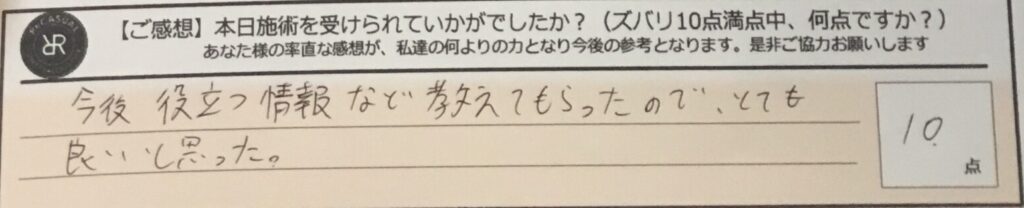 【ご感想】本日施術を受けられていかがでしたか？（ズバリ10点満点中、何点ですか？）
あなた様の率直な感想が、私達の何よりの力となり今後の参考となります。是非ご協力お願いします
今後 役立つ情報など教えてもらったので、とても
良いと思った。
10
点